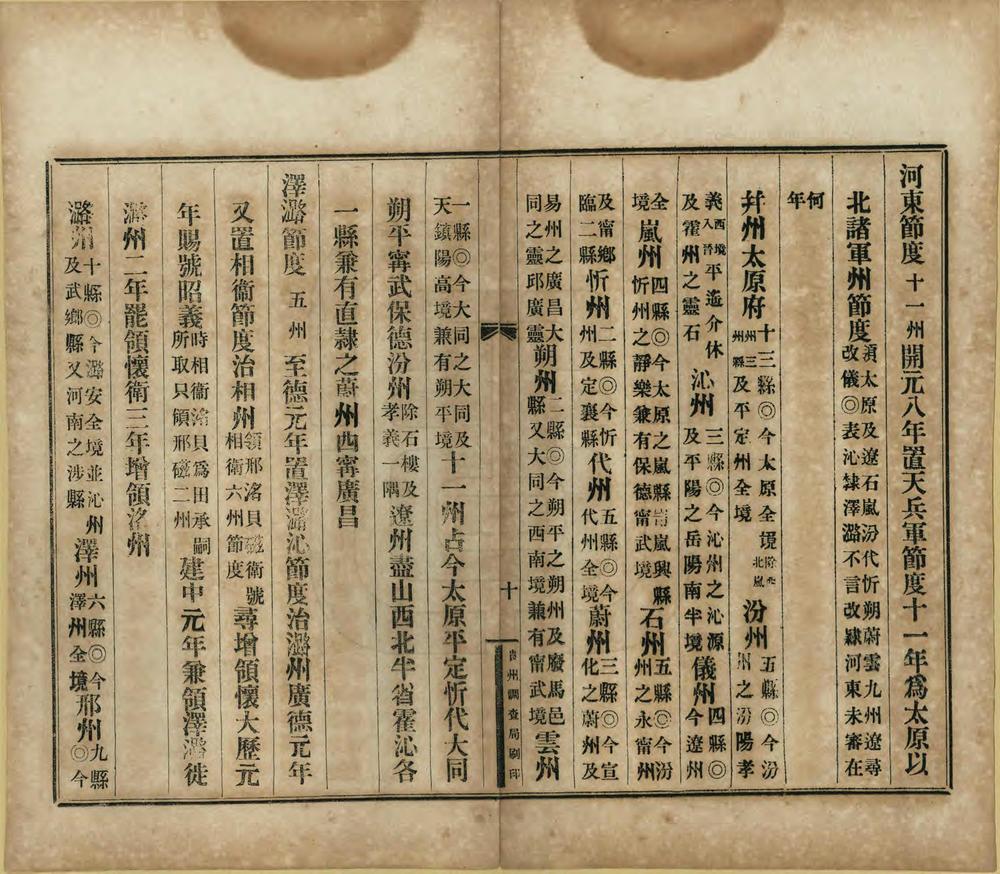 河東節度十一州開元八年置天兵軍節度十一年爲太原以
北諸軍州節度領太原及遼石嵐汾代忻朔蔚雲九州遼尋改儀◎表沁隸澤潞不言改隸河東未審在
何年
幷州太原府十三縣◎今太原全境除太北嵐州三州縣及平定州全境汾州五縣◎今汾州之汾陽孝
義西境入晉平遙介休及霍州之靈石沁州三縣◎今沁州之沁源及平陽之岳陽南半境儀州四縣◎今遼州
全境嵐州四縣◎今太原之嵐縣岢嵐興縣忻州之靜樂兼有保德甯武境石州五縣◎今汾州之永甯州
及甯鄉臨二縣忻州二縣◎今忻州及定襄縣代州五縣◎今代州全境蔚州三縣◎今宣化之蔚州及
易州之廣昌大同之靈邱廣靈朔州二縣◎今朔平之朔州及廢馬邑縣又大同之西南境兼有甯武境雲州
十
貴州調查局刷印
一縣◎今大同之大同及天鎮陽高境兼有朔平境十一州占今太原平定忻代大同
朔平甯武保德汾州除石樓及孝義一隅遼州盡山西北半省霍沁各
一縣兼有直隸之蔚州西甯廣昌
澤潞節度五州至德元年置澤潞沁節度治潞州廣德元年
又置相衞節度治相州領邢洺貝磁衞號相衞六州節度尋增領懷大歷元
年賜號昭義時相衞洺貝爲田承嗣所取只領邢磁二州建中元年兼領澤潞徙
潞州二年罷領懷衞三年增領洺州
潞州十縣◎今潞安全境並沁州及武鄉縣又河南之涉縣澤州六縣◎今澤州全境邢州九縣◎今